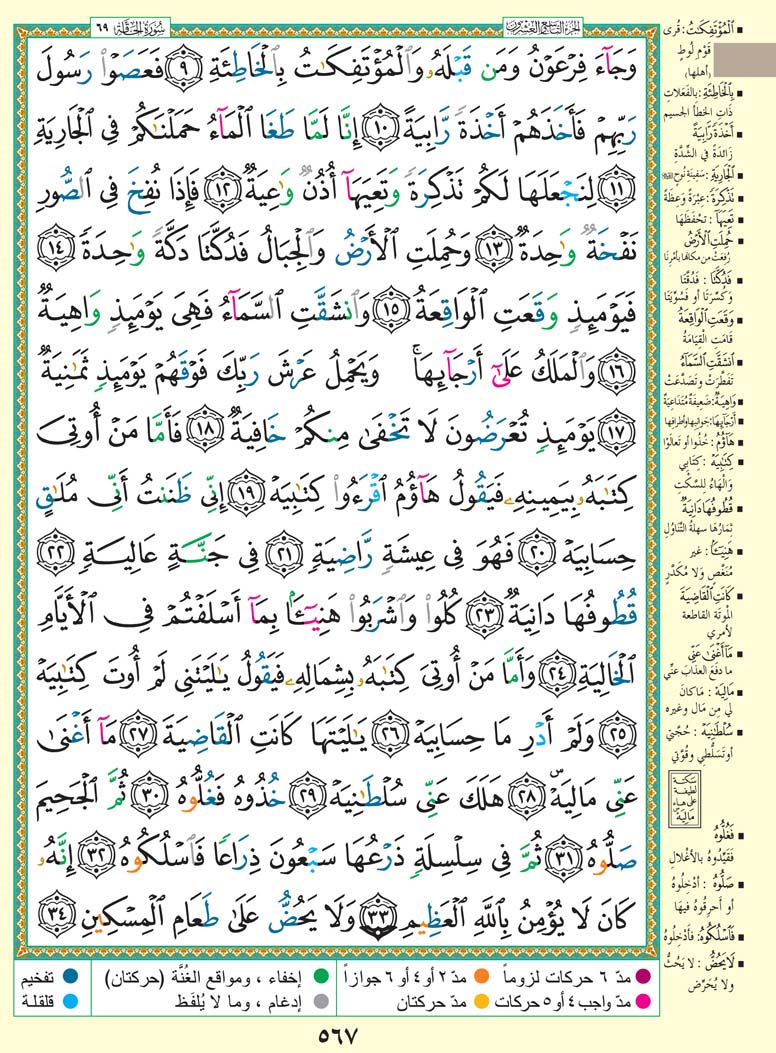 سُورَةُ الحَاقَّةِ ٦٩
الجزء التاسع والعشرون
وَجَآءَ فِرْعَوْنُ وَمَن قَبْلَهُۥ وَٱلْمُؤْتَفِكَٰتُ بِٱلْخَاطِئَةِ ٩ فَعَصَوْا۟ رَسُولَ
رَبِّهِمْ فَأَخَذَهُمْ أَخْذَةً رَّابِيَةً ١٠ إِنَّا لَمَّا طَغَا ٱلْمَآءُ حَمَلْنَٰكُمْ فِى ٱلْجَارِيَةِ
١١ لِنَجْعَلَهَا لَكُمْ تَذْكِرَةً وَتَعِيَهَآ أُذُنٌ وَٰعِيَةٌ ١٢ فَإِذَا نُفِخَ فِى ٱلصُّورِ
نَفْخَةٌ وَٰحِدَةٌ ١٣ وَحُمِلَتِ ٱلْأَرْضُ وَٱلْجِبَالُ فَدُكَّتَا دَكَّةً وَٰحِدَةً ١٤
فَيَوْمَئِذٍ وَقَعَتِ ٱلْوَاقِعَةُ ١٥ وَٱنشَقَّتِ ٱلسَّمَآءُ فَهِىَ يَوْمَئِذٍ وَاهِيَةٌ
١٦ وَٱلْمَلَكُ عَلَىٰٓ أَرْجَآئِهَا ۚ وَيَحْمِلُ عَرْشَ رَبِّكَ فَوْقَهُمْ يَوْمَئِذٍ ثَمَٰنِيَةٌ
١٧ يَوْمَئِذٍ تُعْرَضُونَ لَا تَخْفَىٰ مِنكُمْ خَافِيَةٌ ١٨ فَأَمَّا مَنْ أُوتِىَ
كِتَٰبَهُۥ بِيَمِينِهِۦ فَيَقُولُ هَآؤُمُ ٱقْرَءُوا۟ كِتَٰبِيَهْ ١٩ إِنِّى ظَنَنتُ أَنِّى مُلَٰقٍ
حِسَابِيَهْ ٢٠ فَهُوَ فِى عِيشَةٍ رَّاضِيَةٍ ٢١ فِى جَنَّةٍ عَالِيَةٍ ٢٢
قُطُوفُهَا دَانِيَةٌ ٢٣ كُلُوا۟ وَٱشْرَبُوا۟ هَنِيٓـًٔۢا بِمَآ أَسْلَفْتُمْ فِى ٱلْأَيَّامِ
ٱلْخَالِيَةِ ٢٤ وَأَمَّا مَنْ أُوتِىَ كِتَٰبَهُۥ بِشِمَالِهِۦ فَيَقُولُ يَٰلَيْتَنِى لَمْ أُوتَ كِتَٰبِيَهْ
٢٥ وَلَمْ أَدْرِ مَا حِسَابِيَهْ ٢٦ يَٰلَيْتَهَا كَانَتِ ٱلْقَاضِيَةَ ٢٧ مَآ أَغْنَىٰ
عَنِّى مَالِيَهْ ۜ ٢٨ هَلَكَ عَنِّى سُلْطَٰنِيَهْ ٢٩ خُذُوهُ فَغُلُّوهُ ٣٠ ثُمَّ ٱلْجَحِيمَ
صَلُّوهُ ٣١ ثُمَّ فِى سِلْسِلَةٍ ذَرْعُهَا سَبْعُونَ ذِرَاعًا فَٱسْلُكُوهُ ٣٢ إِنَّهُۥ
كَانَ لَا يُؤْمِنُ بِٱللَّهِ ٱلْعَظِيمِ ٣٣ وَلَا يَحُضُّ عَلَىٰ طَعَامِ ٱلْمِسْكِينِ ٣٤
■ ٱلْمُؤْتَفِكَٰتُ: قُرى
قَوْمِ لُوطٍ
(أهلها)
■ بِٱلْخَاطِئَةِ: بالفَعَلاتِ
ذاتِ الخطَأ الجسيم
■ أَخْذَةً رَّابِيَةً
زائدَةً في الشِّدَّة
■ ٱلْجَارِيَةِ: سَفينة نُوحٍ
■ تَذْكِرَةً: عِبْرَةً وَعِظَةً
■ تَعِيَهَا: تَحْفَظَها
■ حُمِلَتِ ٱلْأَرْضُ
رُفِعَتْ مِن مكانِها بأمْرِنا
■ فَدُكَّتَا: فَدُقَّتَا
وَكُسِّرَتا أو فَسُوِّيَتا
■ وَقَعَتِ ٱلْوَاقِعَةُ
قامَتِ القِيَامَةُ
■ ٱنشَقَّتِ ٱلسَّمَآءُ
تَفَطَّرَتْ وتَصَدَّعَتْ
■ وَاهِيَةٌ: ضَعِيفَةٌ مُتَدَاعِيَةٌ
■ أَرْجَآئِهَا: جَوانِبِها وأطرافِها
■ هَآؤُمُ: خُذُوا أو تَعَالَوْا
■ كِتَٰبِيَهْ: كتابي
والهَاءُ للسَّكْت
■ قُطُوفُهَا دَانِيَةٌ
ثِمارُها سهلَةُ التَّنَاوُل
■ هَنِيٓـًٔا: غير
مُنَغَّصٍ ولا مُكَدَّرٍ
■ كَانَتِ ٱلْقَاضِيَةَ
الموتَةَ القاطعة
لأمري
■ مَآ أَغْنَىٰ عَنِّى
ما دفَعَ العذابَ عنِّي
■ مَالِيَهْ: ما كانَ
لي مِن مالٍ وغيره
■ سُلْطَٰنِيَهْ: حُجَّتي
أو تَسَلُّطي وقُوَّتي
سكتة
لطيفة
على هاء
مَالِيَهْ
■ فَغُلُّوهُ
فَقَيِّدُوهُ بالأغْلالِ
■ صَلُّوهُ: أدْخِلُوهُ
أو أحرِقُوهُ فيها
■ فَٱسْلُكُوهُ: فأدْخِلُوهُ
■ لَا يَحُضُّ: لا يَحُثُّ
ولا يُحَرِّض
مدّ ٦ حركات لزوماً
مدّ ٢ أو ٤ أو ٦ جوازاً
إخفاء، ومواقع الغُنَّة (حركتان)
تفخيم
مدّ واجب ٤ أو ٥ حركات
مدّ حركتان
إدغام، وما لا يُلفَظ
قلقلة
٥٦٧